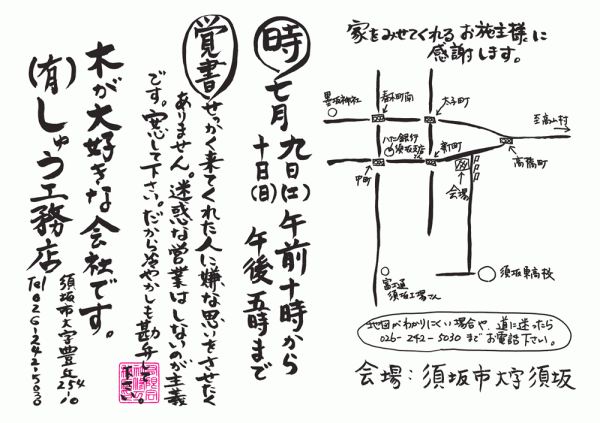 家をみせてくれるお施主様に
感謝します。
時
七月九日(土)午前十時から
十日(日)午後五時まで
覚書
せっかく来てくれた人に嫌な思いをさせたく
ありません。迷惑な営業はしないのが主義
です。安心して下さい。だから冷やかしも勘弁して
下さい。
木が大好きな会社です。
(有)しゅう工務店
須坂市大字豊丘254-10
Tel 026-242-5030
墨坂神社
春木町南
太子町
至高山村
八十二銀行
須坂支店
新町
高橋町
中町
会場
富士通
須坂工場さん
須坂東高校
地図がわかりにくい場合や、道に迷ったら
026-242-5030までお電話下さい。
会場:須坂市大字須坂